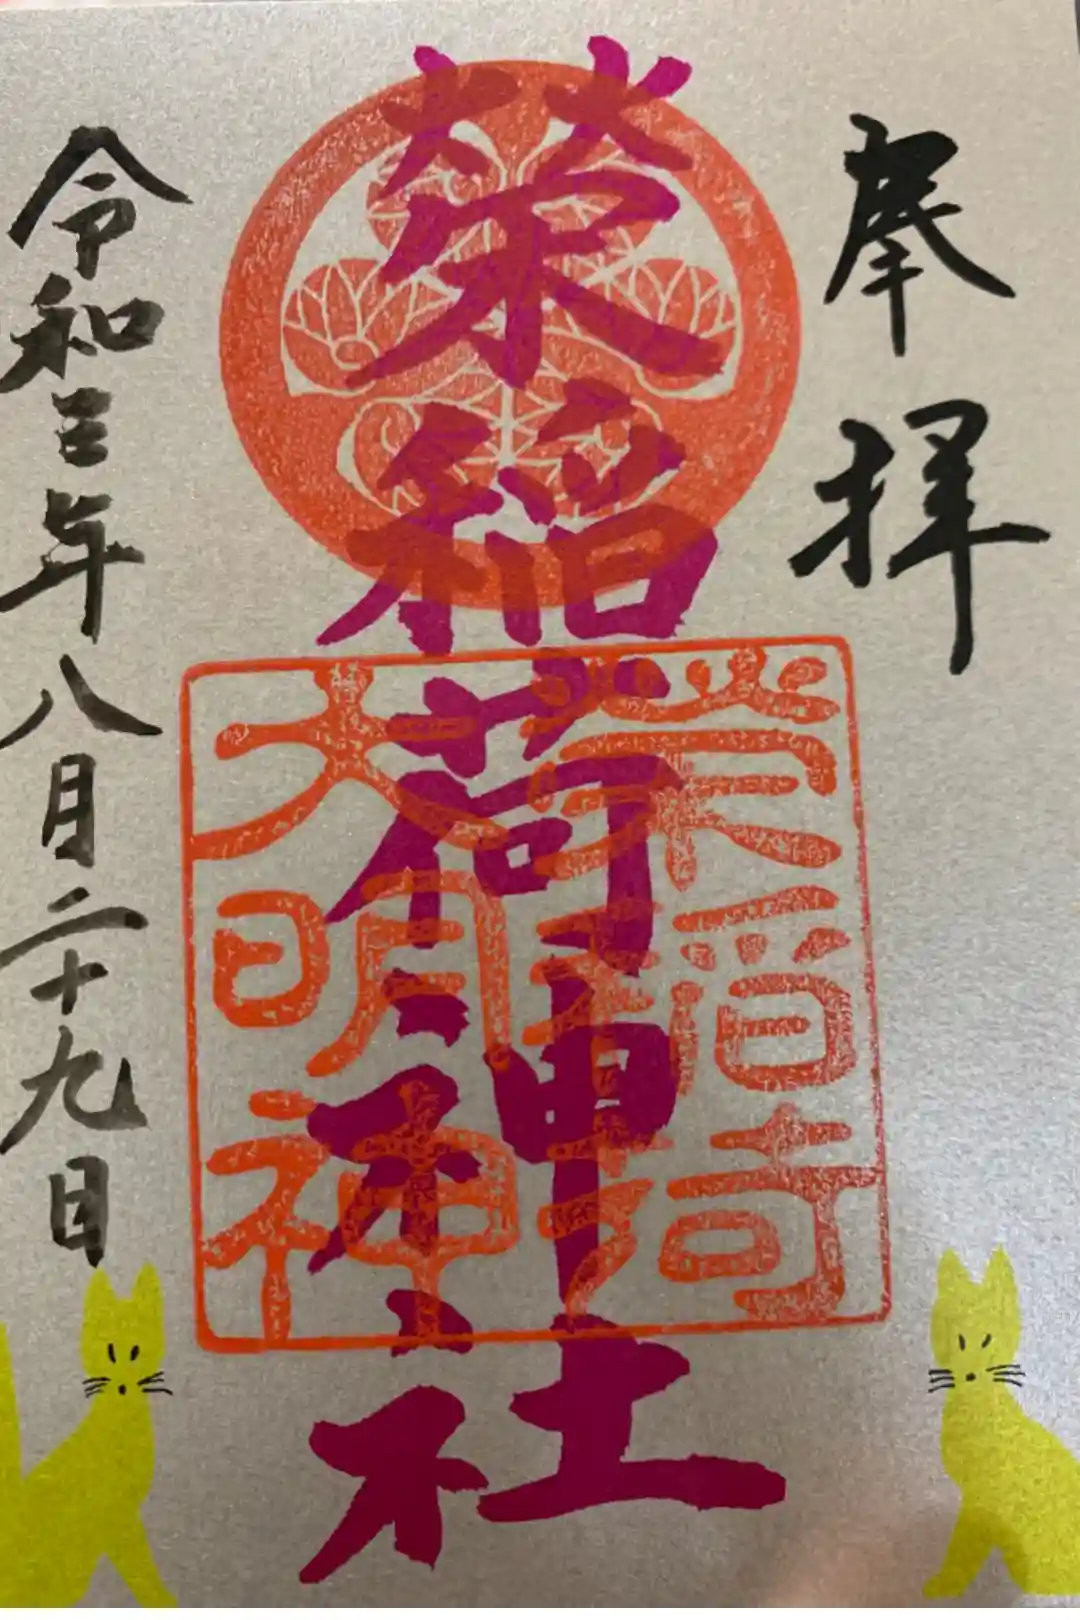 奉拝
榮稲荷神社
大明神
令和三年八月二十九日